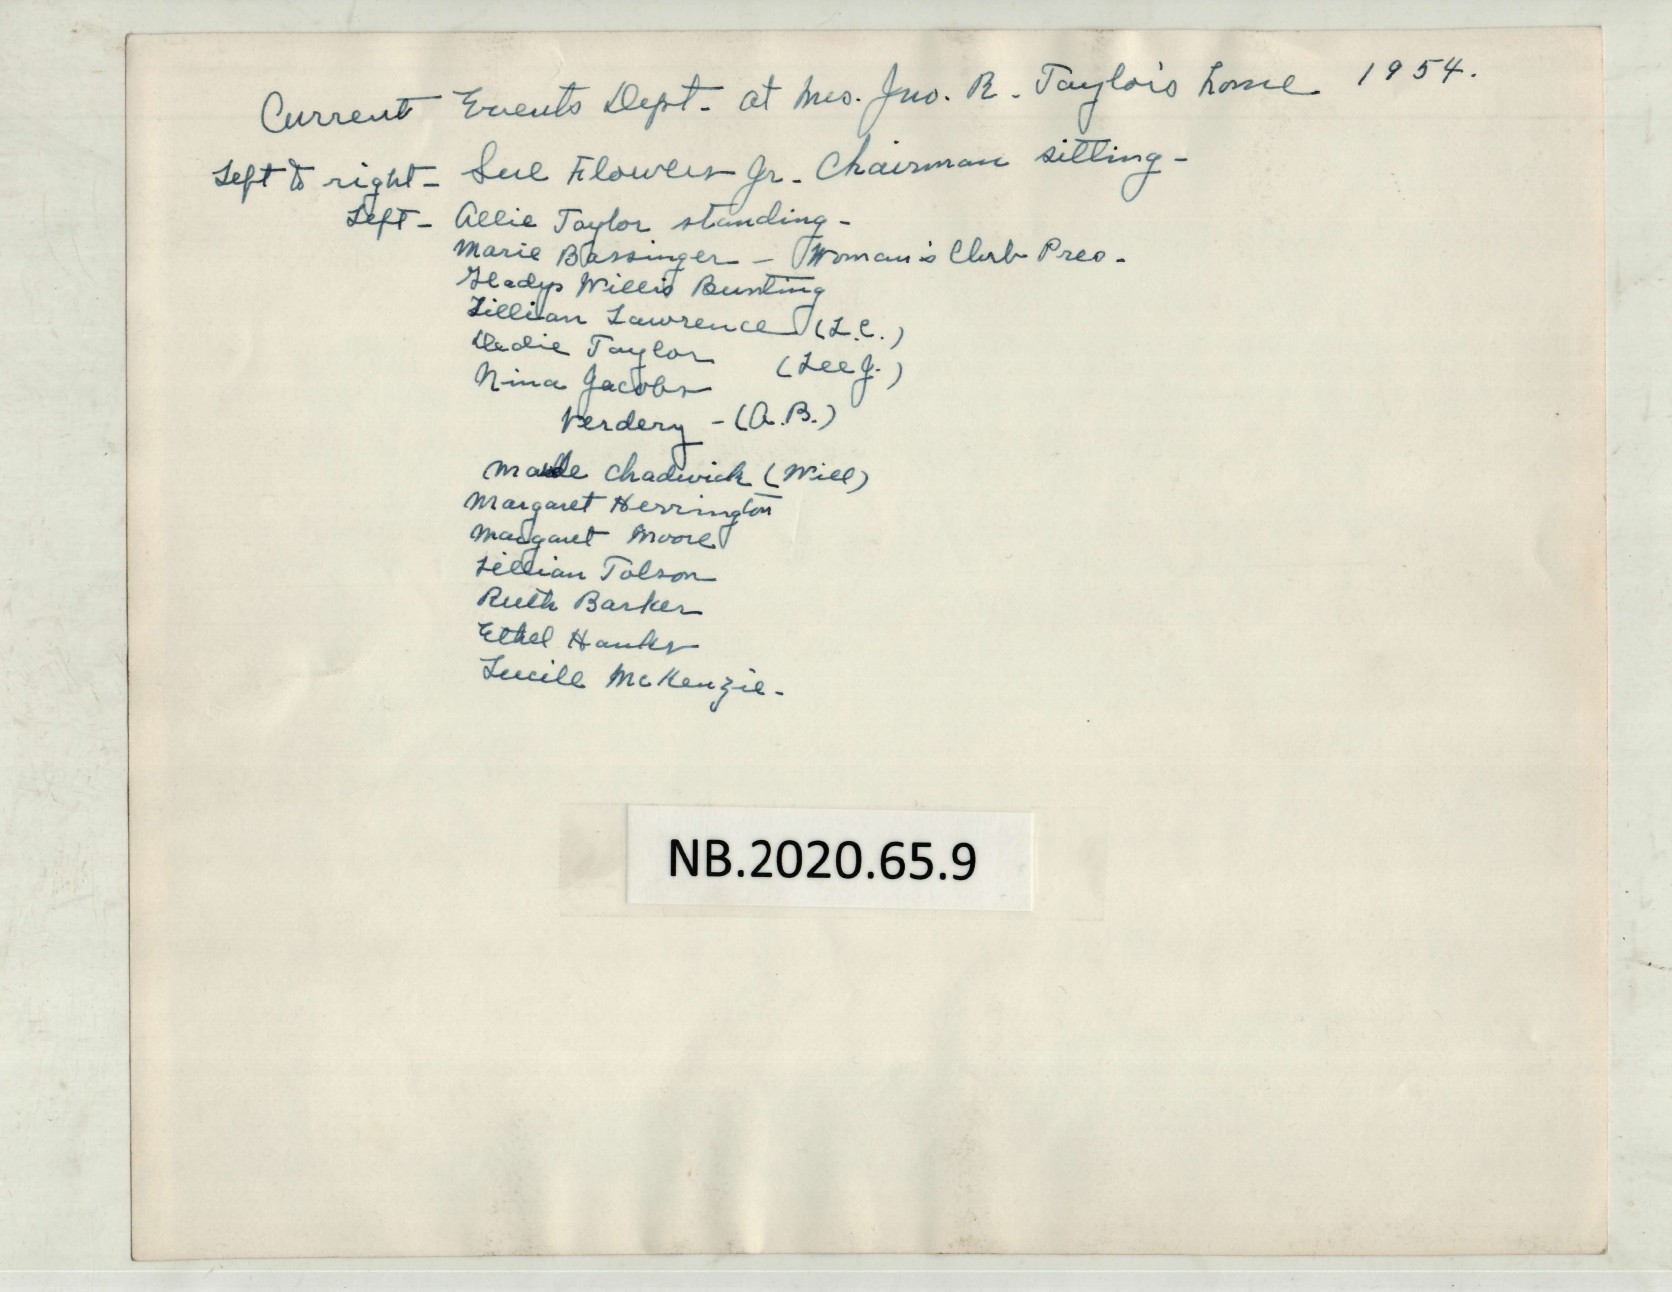 Current Events Dept - at Mrs. Jno. R. Taylor's home 1954.
Left to right - Sue Flowers Jr. Chairman sitting -
Left - Allie Taylor standing -
Marie Bassinger - Woman's Club Pres.
Gladys Willis Bunting
Lillian Lawrence (L.C.)
Dedie Taylor (Lee J.)
Nina Jacobs
Verdery - (A.B.)
Chadwick (Will)
Margaret Herrington
Margaret Moore
Lillian Tolson
Ruth Barker
Ethel Hanks
Lucile McKenzie -
NB.2020.65.9